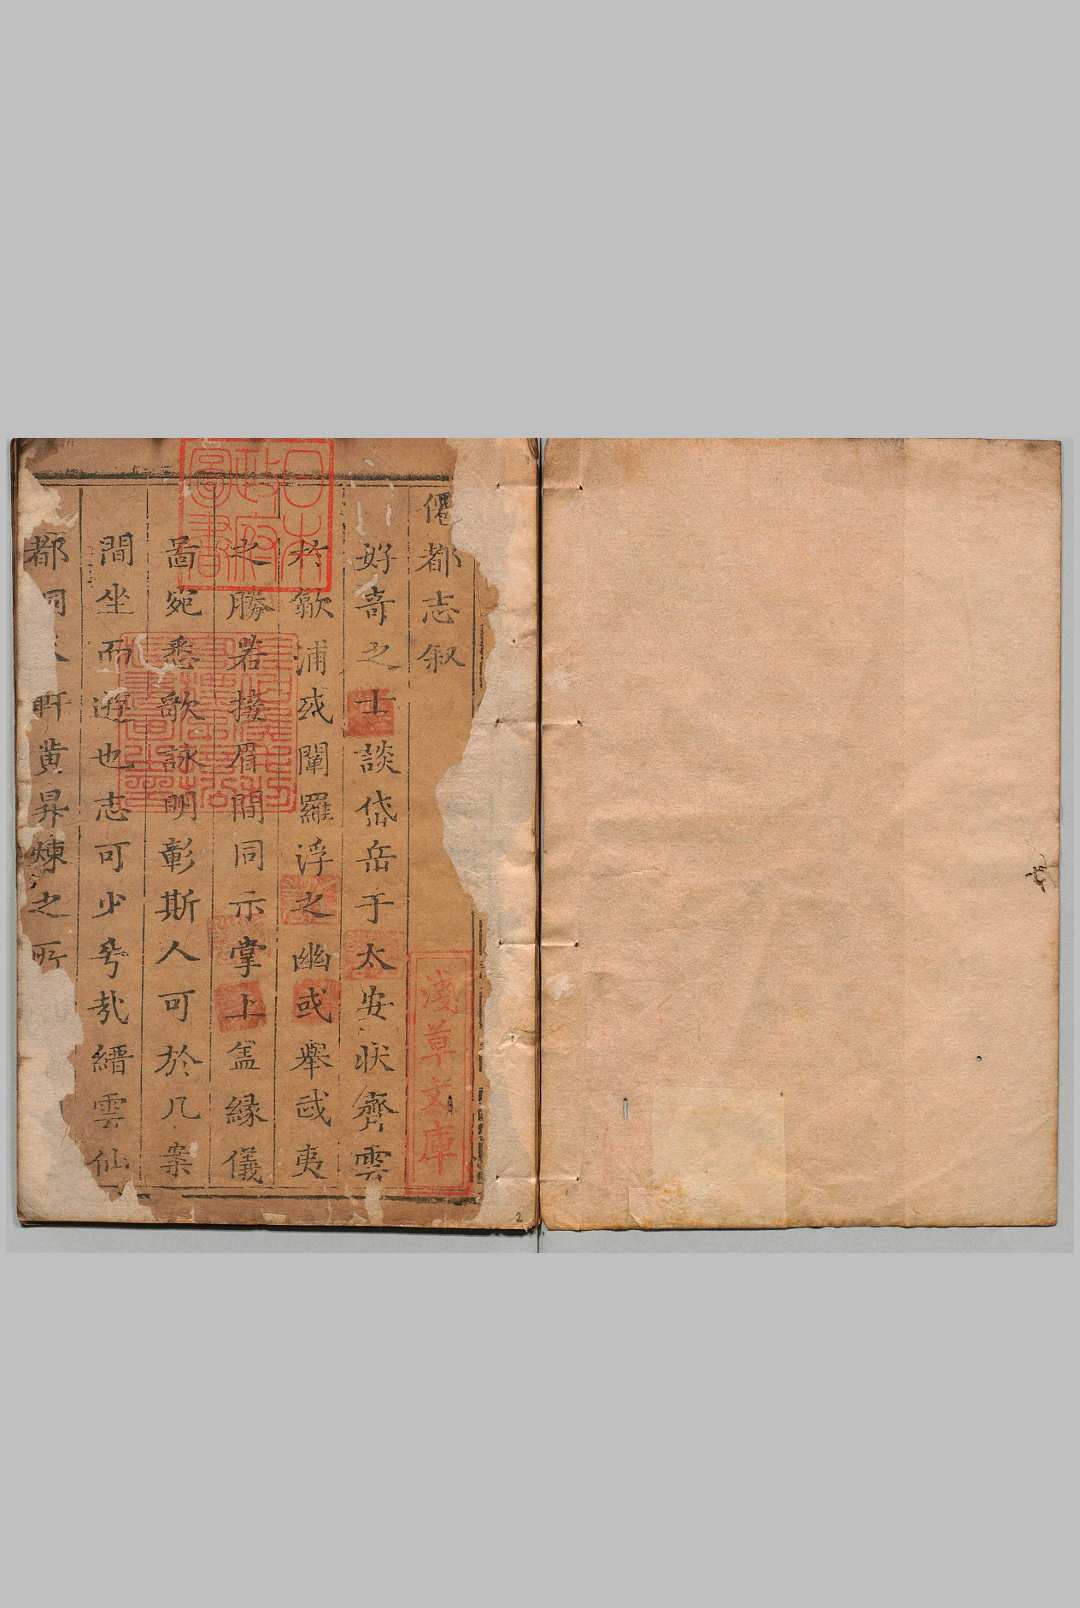 僊都志叙
好奇之士談岱岳于太安狀齊雲
於歙浦或闡羅浮之幽或舉武夷
之勝若接眉間同示掌上盖縁儀
啚宛悉歌詠明彰斯人可於几案
間坐而遊也志可少乎㢤縉雲仙
都洞天軒黄昇煉之所
日本政府圖書
淺草文庫
2